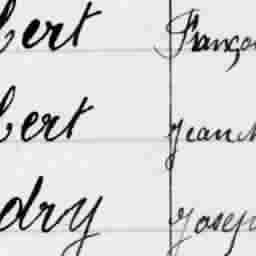 bert Franço
bert Jean M
dry Josep